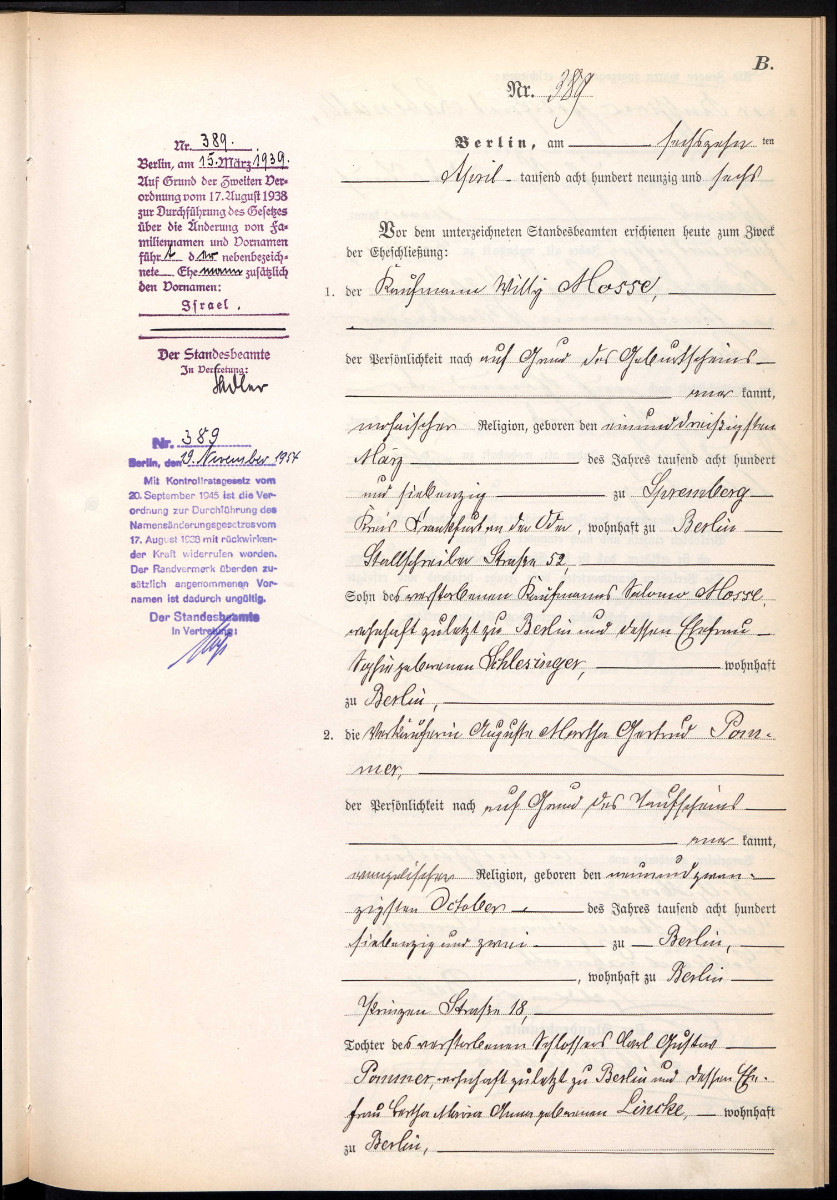 B.
Nr. 389
Berlin, am sechszehn ten
April tausend acht hundert neunzig und sechs
Vor dem unterzeichneten Standesbeamten erschienen heute zum Zweck
der Eheschließung:
1. der Kaufmann Willy Mosse,
der Persönlichkeit nach auf Grund des Geburtsscheins
aner kannt,
mosaischer Religion, geboren den einunddreißigsten
März des Jahres tausend acht hundert
und siebenzig zu Spremberg
Kreis Frankfurt an der Oder, wohnhaft zu Berlin
Stallschreiber Straße 52,
Sohn des verstorbenen Kaufmanns Salomo Mosse,
wohnhaft zuletzt zu Berlin und dessen Ehefrau
Sophie geborenen Schlesinger, wohnhaft
zu Berlin,
2. die Verkäuferin Auguste Martha Gertrud Pom-
mer,
der Persönlichkeit nach auf Grund des Taufscheins
aner kannt,
evangelischer Religion, geboren den neunundzwan-
zigsten October des Jahres tausend acht hundert
siebenzig und zwei zu Berlin,
, wohnhaft zu Berlin
Prinzen Straße 18,
Tochter des verstorbenen Schlossers Carl Gustav
Pommer, wohnhaft zuletzt zu Berlin und dessen Ehe-
frau Bertha Maria Anna geborenen Lincke, wohnhaft
zu Berlin,
Nr. 389.
Berlin, am 15. März 1939.
Auf Grund der Zweiten Ver-
ordnung vom 17. August 1938
zur Durchführung des Gesetzes
über die Änderung von Fa-
miliennamen und Vornamen
führt der nebenbezeich-
nete Ehemann zusätzlich
den Vornamen:
Israel.
Der Standesbeamte
In Vertretung:
Nr. 389
Berlin, den 19. November 1954
Mit Kontrollratsgesetz vom
20. September 1945 ist die Ver-
ordnung zur Durchführung des
Namensänderungsgesetzes vom
17. August 1938 mit rückwirken-
der Kraft widerrufen worden.
Der Randvermerk über den zu-
sätzlich angenommenen Vor-
namen ist dadurch ungültig.
Der Standesbeamte
In Vertretung: